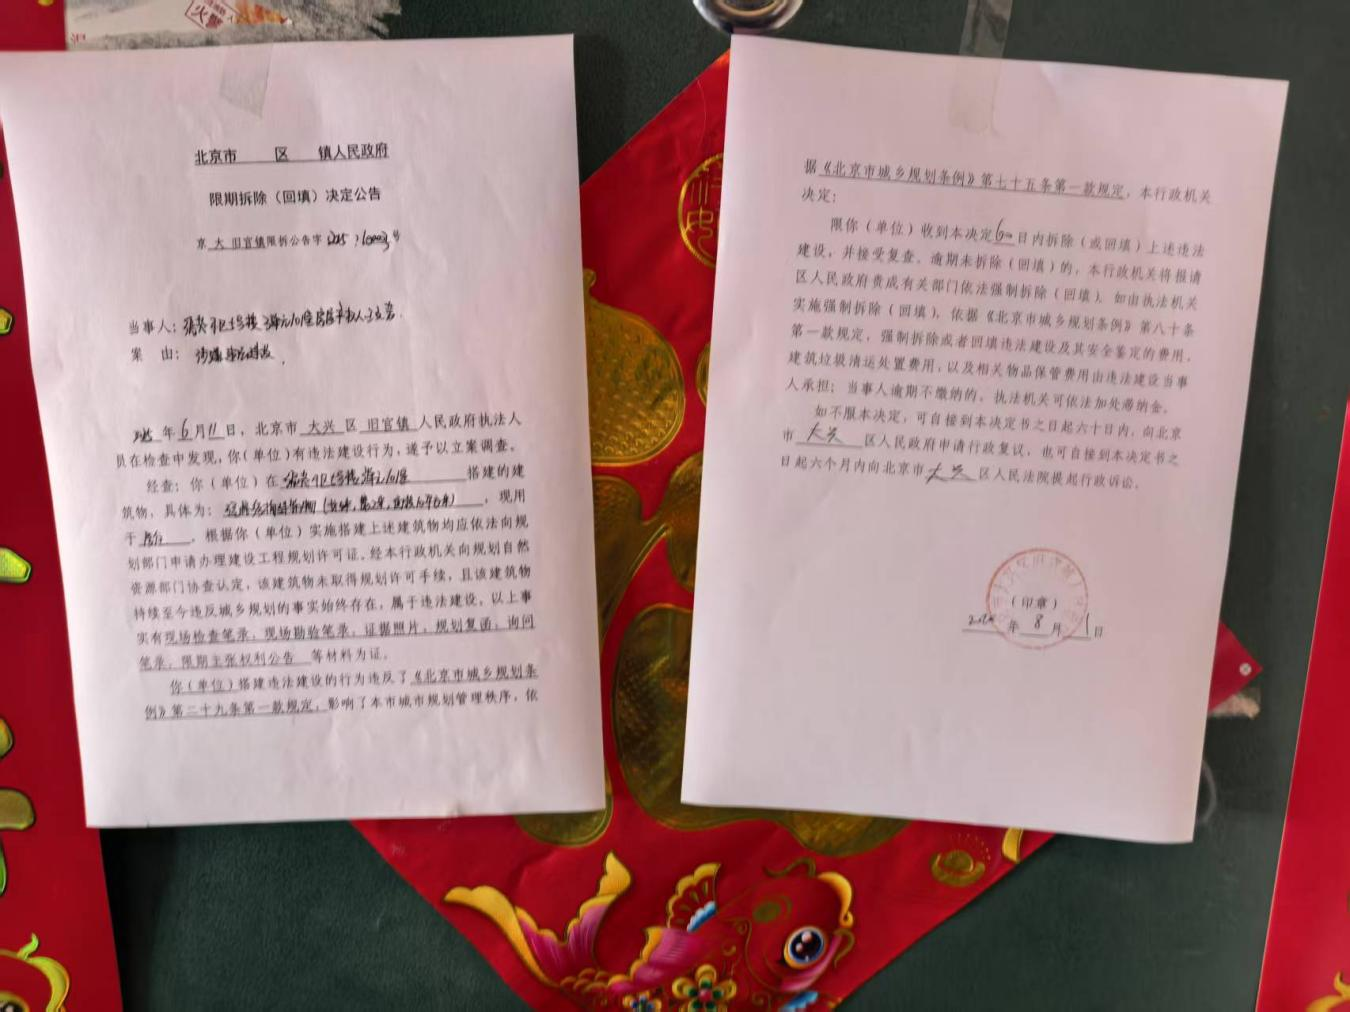 火警
北京市 区 镇人民政府
限期拆除（回填）决定公告
京 大 旧官镇限拆公告字 号
当事人：
案 由：
年6月11日，北京市 大兴 区 旧官镇 人民政府执法人
员在检查中发现，你（单位）有违法建设行为，遂予以立案调查。
经查：你（单位）在 搭建的建
筑物，具体为： ，现用
于 。根据你（单位）实施搭建上述建筑物均应依法向规
划部门申请办理建设工程规划许可证。经本行政机关向规划自然
资源部门协查认定，该建筑物未取得规划许可手续，且该建筑物
持续至今违反城乡规划的事实始终存在，属于违法建设。以上事
实有现场检查笔录，现场勘验笔录，证据照片，规划复函，询问
笔录，限期主张权利公告 等材料为证。
你（单位）搭建违法建设的行为违反了《北京市城乡规划条
例》第二十九条第一款规定，影响了本市城市规划管理秩序，依
据《北京市城乡规划条例》第七十五条第一款规定，本行政机关
决定：
限你（单位）收到本决定 日内拆除（或回填）上述违法
建设，并接受复查。逾期未拆除（回填）的，本行政机关将报请
区人民政府责成有关部门依法强制拆除（回填）。如由执法机关
实施强制拆除（回填），依据《北京市城乡规划条例》第八十条
第一款规定，强制拆除或者回填违法建设及其安全鉴定的费用、
建筑垃圾清运处置费用，以及相关物品保管费用由违法建设当事
人承担；当事人逾期不缴纳的，执法机关可依法加处滞纳金。
如不服本决定，可自接到本决定书之日起六十日内，向北京
市 大兴 区人民政府申请行政复议，也可自接到本决定书之
日起六个月内向北京市 大兴 区人民法院提起行政诉讼。
（印章）
年 8 月 1 日